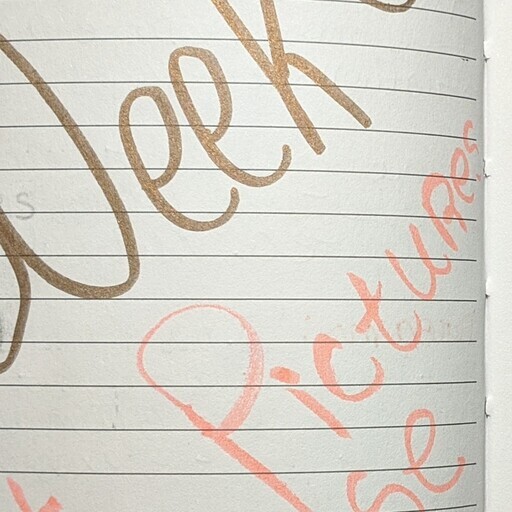 Week
Pictures
se